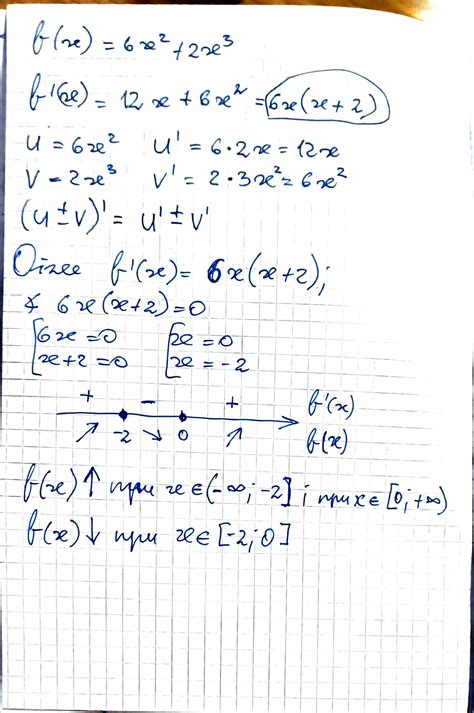 f(x) = 6x² + 2x³
f'(x) = 12x + 6x² = 6x(x+2)
u = 6x² u' = 6·2x = 12x
v = 2x³ v' = 2·3x² = 6x²
(u ± v)' = u' ± v'
Отже f'(x) = 6x(x+2);
6x(x+2)=0
[6x=0 [x=0
[x+2=0 [x=-2
+ - + f'(x)
↗ -2 ↘ 0 ↗ f(x)
f(x) ↑ при x∈(-∞; -2] і при x∈[0; +∞)
f(x) ↓ при x∈[-2; 0]